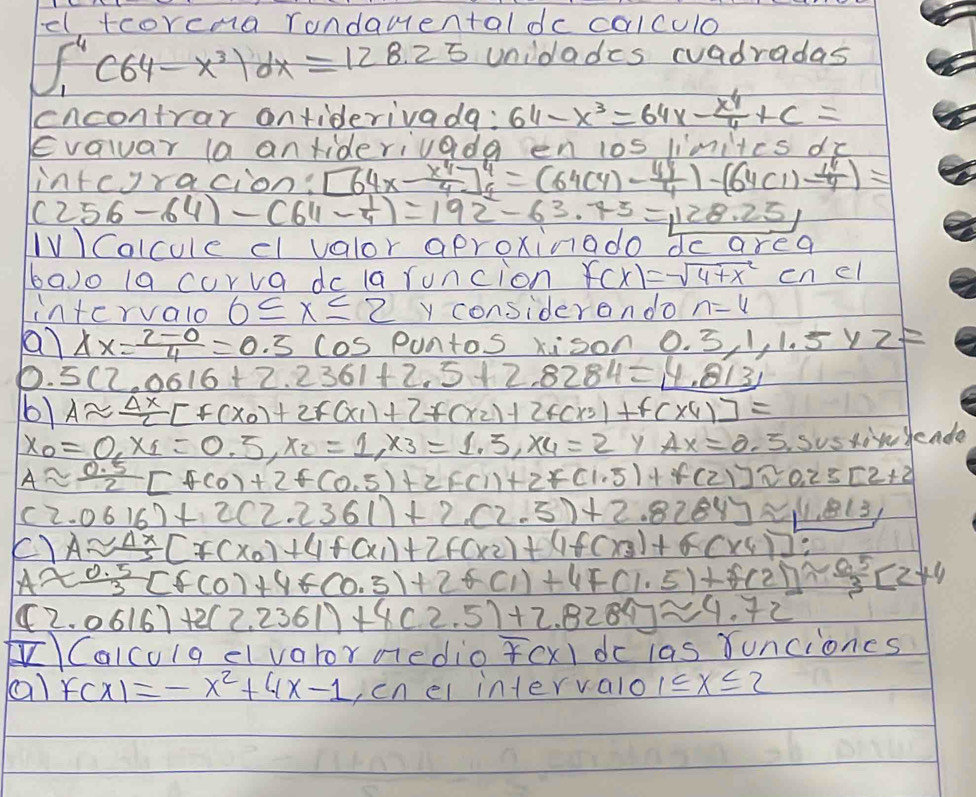 el teorema fundamental de calculo
∫₁⁴ (64-x³)dx = 128.25 unidades cuadradas
encontrar antiderivada: 64-x³=64x-x⁴/4+C=
Evaluar la antiderivada en los limites de
integracion: [64x-x⁴/4]⁴₁=(64(4)-4⁴/4)-(64(1)-1⁴/4)=
(256-64)-(64-1/4)=192-63.75=128.25
IV) Calcule el valor aproximado de area
bajo la curva de la funcion f(x)=√4+x² en el
intervalo 0≤x≤2 y considerando n=4
a) Δx=2-0/4=0.5 Los puntos xi son 0.5,1,1.5 y 2=
0.5(2.0616+2.2361+2.5+2.8284=4.813
b) A≈Δx/2[f(x0)+2f(x1)+2f(x2)+2f(x3)+f(x4)]=
x0=0,x1=0.5,x2=1,x3=1.5,x4=2 y Δx=0.5,sustituyendo
A≈0.5/2[f(0)+2f(0.5)+2f(1)+2f(1.5)+f(2)]≈0.25[2+2
(2.0616)+2(2.2361)+2(2.5)+2.8284]≈4.813
c) A≈Δx/3[f(x0)+4f(x1)+2f(x2)+4f(x3)+f(x4)]:
A≈0.5/3[f(0)+4f(0.5)+2f(1)+4f(1.5)+f(2)]≈0.5/3[2+4
(2.0616)+2(2.2361)+4(2.5)+2.8284]≈4.72
V) Calcula el valor medio f̅(x) de las funciones
a) f(x)=-x²+4x-1, en el intervalo 1≤x≤2